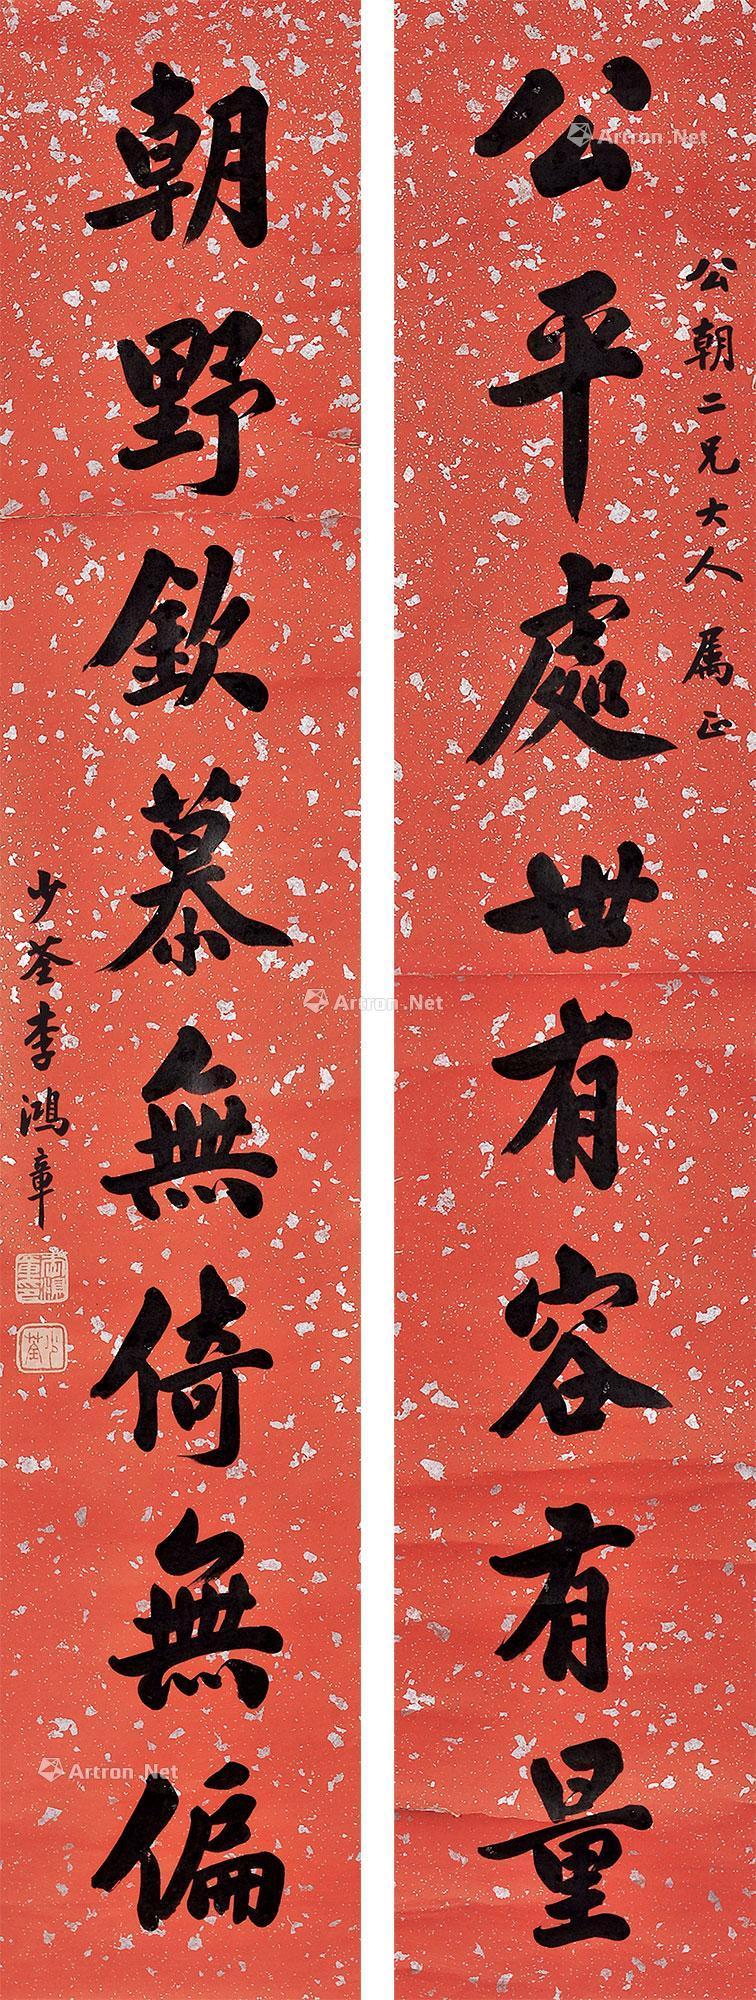 公平處世有容有量
公朝二兄大人 属正
朝野欽慕無倚無偏
少荃李鴻章
李鴻章印
少荃
Artron.Net
Artron.Net
Artron.Net